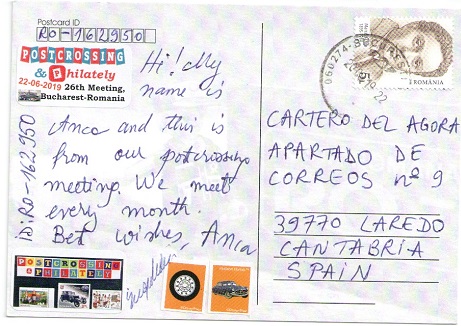 Postcard ID
RO-162950
POSTCROSSING
& Philately
22-06-2019 26th Meeting,
Bucharest-Romania
Hi! My
name is
Anca and this is
from our postcrossing
meeting. We meet
every month.
Best wishes, Anca
iD: RO-162950
POSTCROSSING
& PHILATELY
ROMANIA
CARTERO DEL AGORA
APARTADO DE
CORREOS nº 9
39770 LAREDO
CANTABRIA
SPAIN